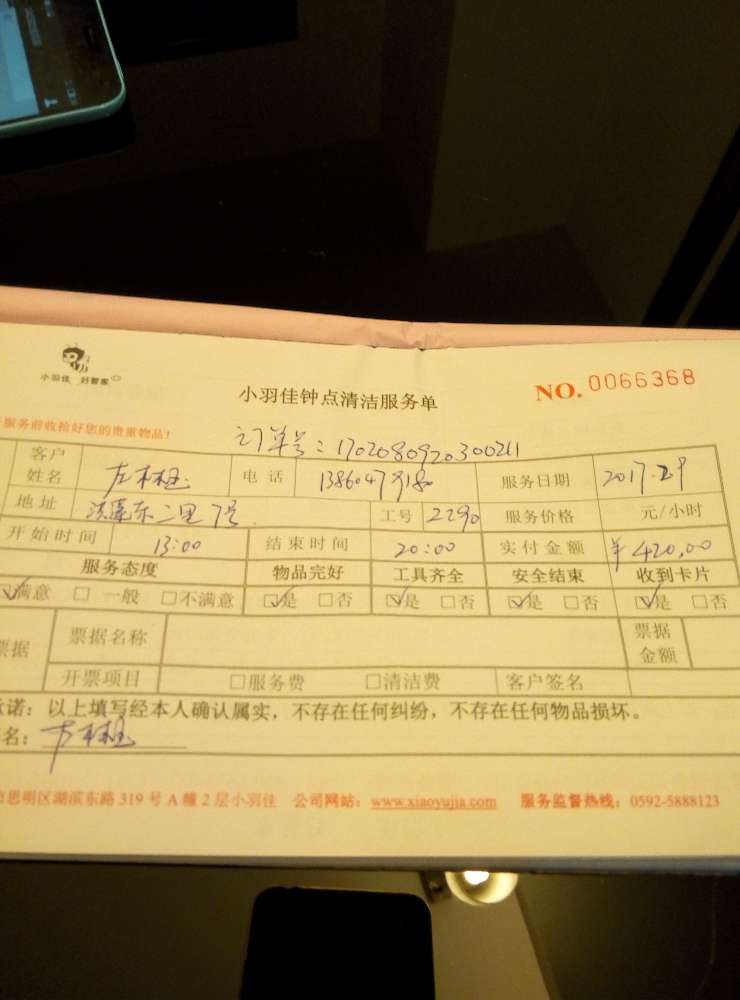 小羽佳 好管家
小羽佳钟点清洁服务单 NO. 0066368
服务前收拾好您的贵重物品!
订单号:170208092030021
客户姓名 电话 服务日期 2017.2.9
地址 东二里7号 工号 2290 服务价格 元/小时
开始时间 13:00 结束时间 20:00 实付金额 ¥420.00
服务态度 物品完好 工具齐全 安全结束 收到卡片
☑满意 □一般 □不满意 ☑是 □否 ☑是 □否 ☑是 □否 ☑是 □否
票据 票据名称 票据金额
开票项目 □服务费 □清洁费 客户签名
诺:以上填写经本人确认属实,不存在任何纠纷,不存在任何物品损坏。
名:
思明区湖滨东路319号A幢2层小羽佳 公司网站:www.xiaoyujia.com 服务监督热线:0592-5888123